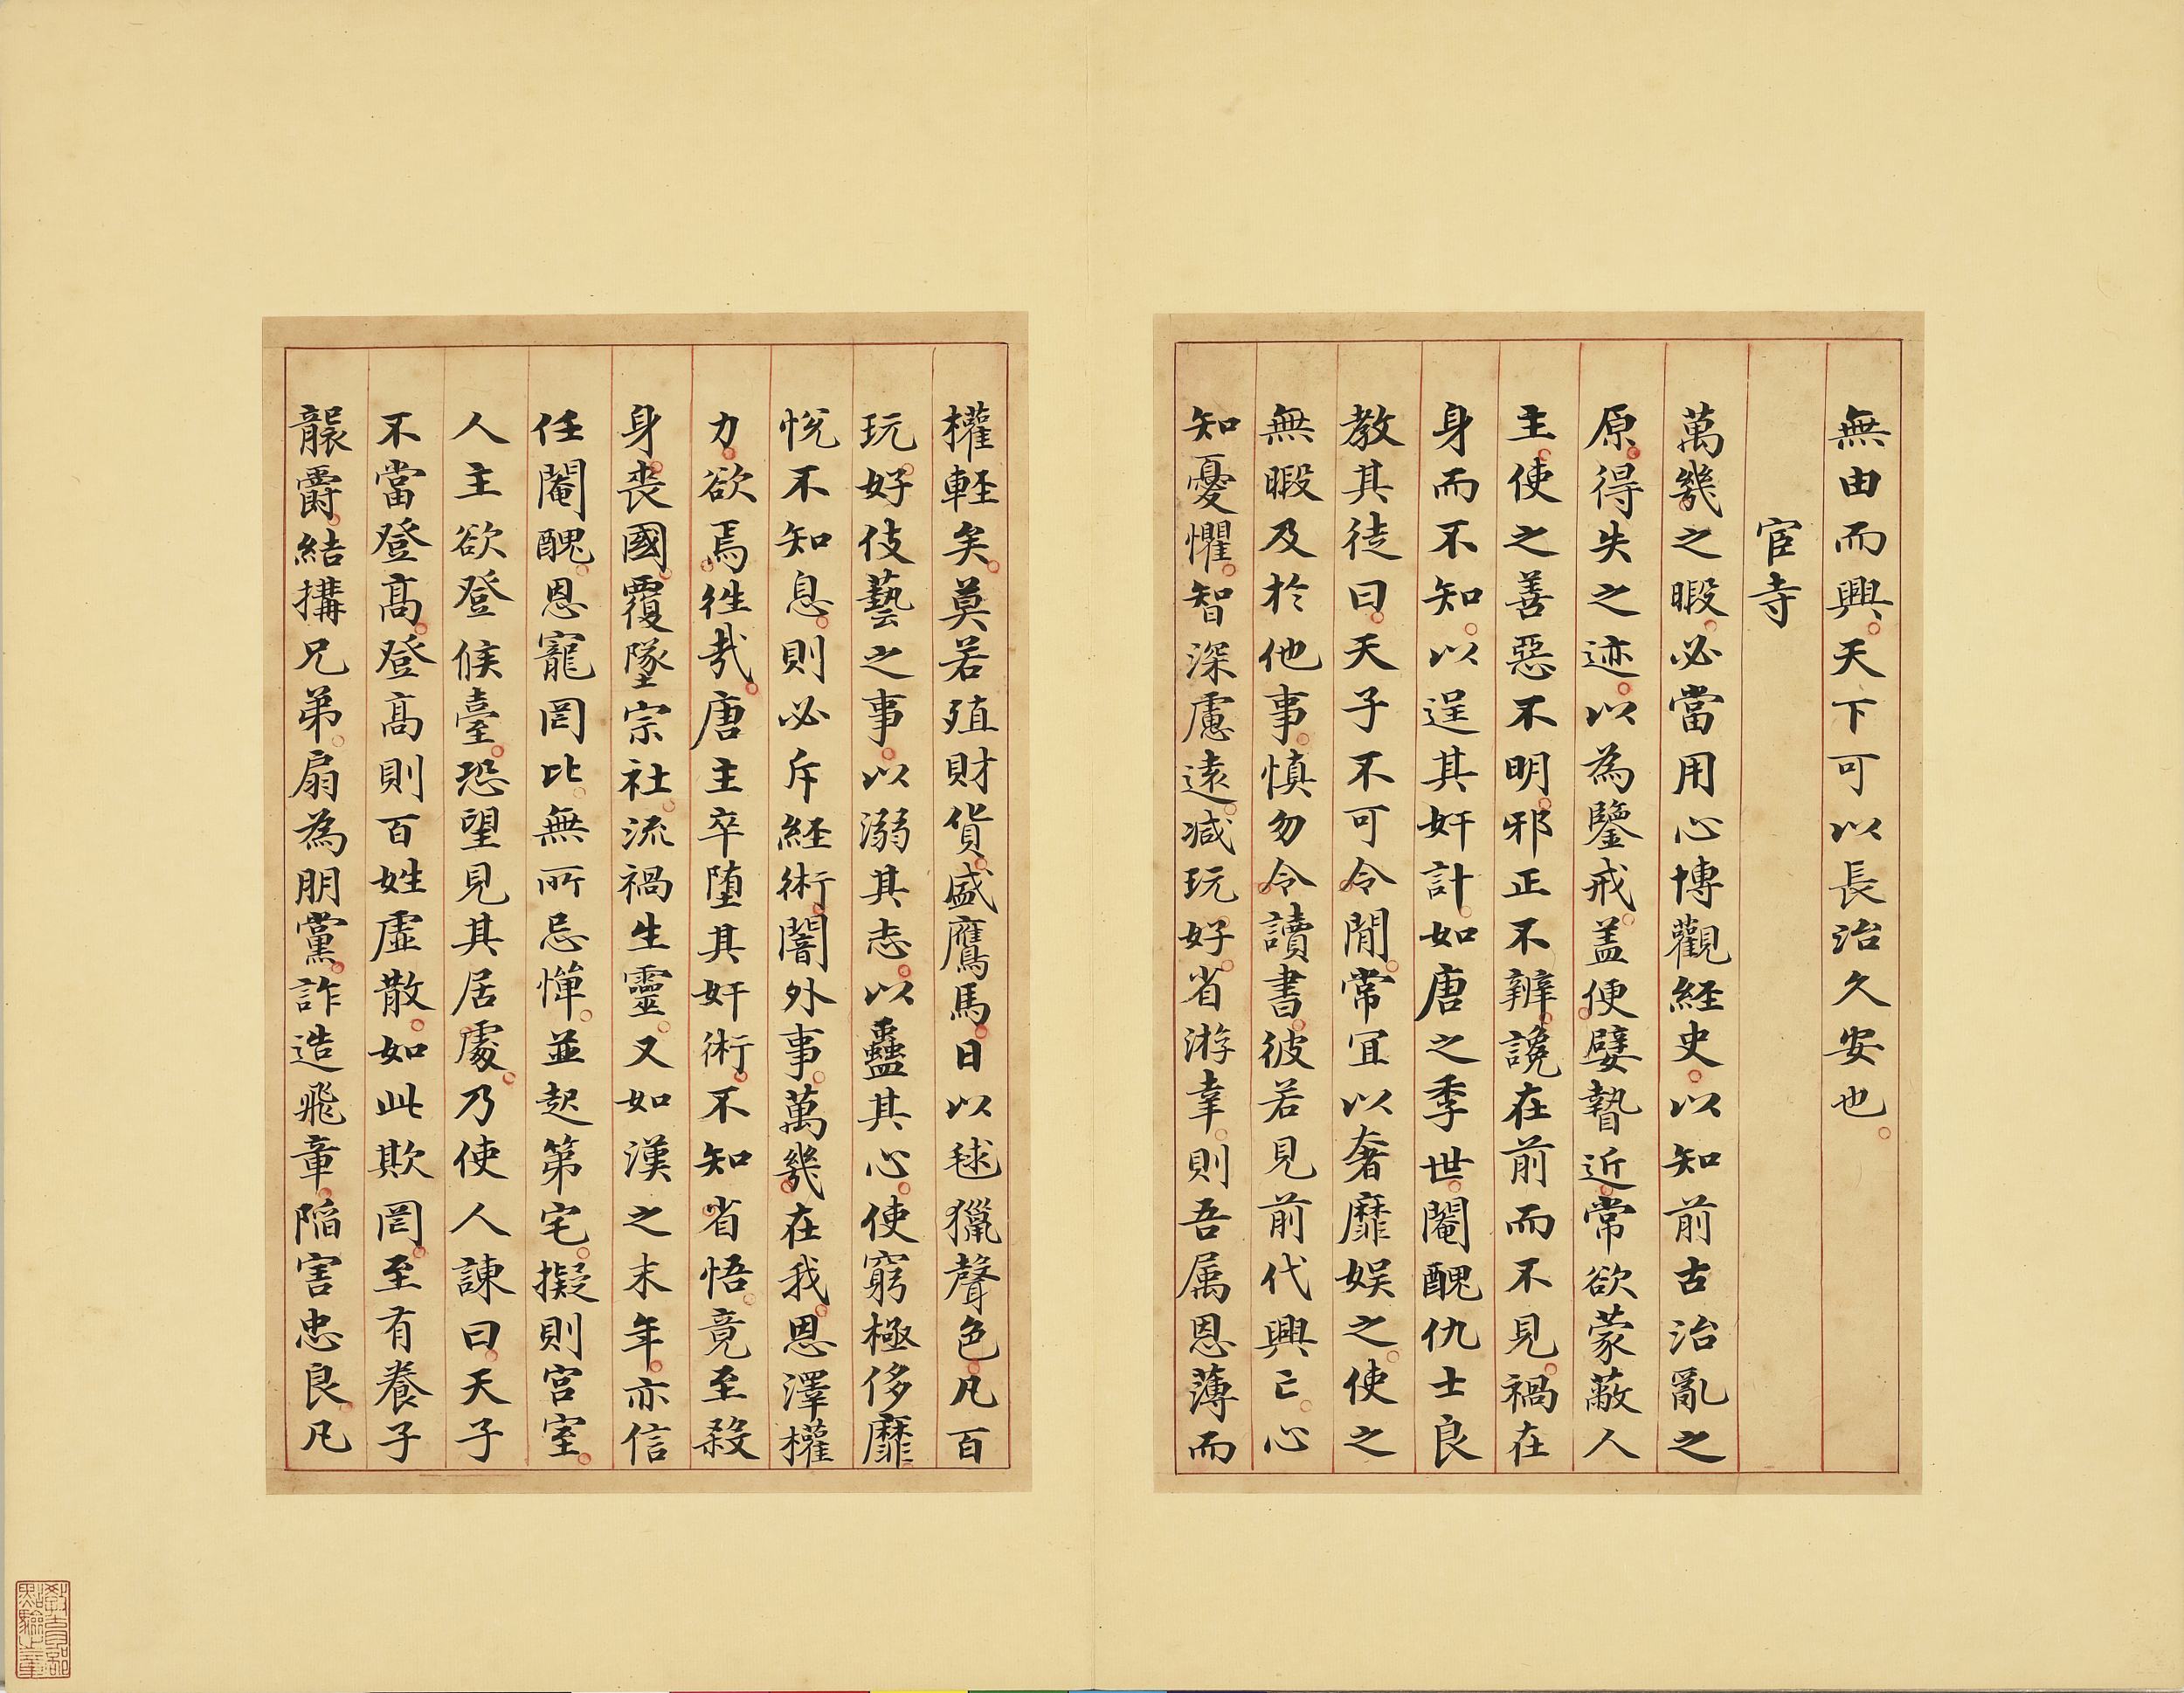 無由而興天下可以長治久安也
宦寺
萬幾之暇必當用心博觀経史以知前古治亂之
原得失之迹以為鑒戒盖便嬖暬近常欲蒙蔽人
主使之善惡不明邪正不辨讒在前而不見禍在
身而不知以逞其奸計如唐之季世閹醜仇士良
教其徒曰天子不可令閒常冝以奢靡娱之使之
無暇及於他事慎勿令讀書彼若見前代興亡心
知憂懼智深慮遠减玩好省游幸則吾属恩薄而
權軽矣莫若殖財貨盛鷹馬日以毬獵聲色凡百
玩好伎藝之事以溺其志以蠱其心使窮極侈靡
悅不知息則必斥経術闇外事萬幾在我恩澤權
力欲焉徃㢤唐主卒堕其奸術不知省悟竟至殺
身丧國覆墜宗社流禍生靈又如漢之末年亦信
任閹醜恩寵罔比無所忌憚並起第宅擬則宫室
人主欲登候臺恐望見其居處乃使人諫曰天子
不當登髙登髙則百姓虚散如此欺罔至有養子
襲爵結搆兄弟扇為朋黨詐造飛章陷害忠良凡
教育部
點驗之章